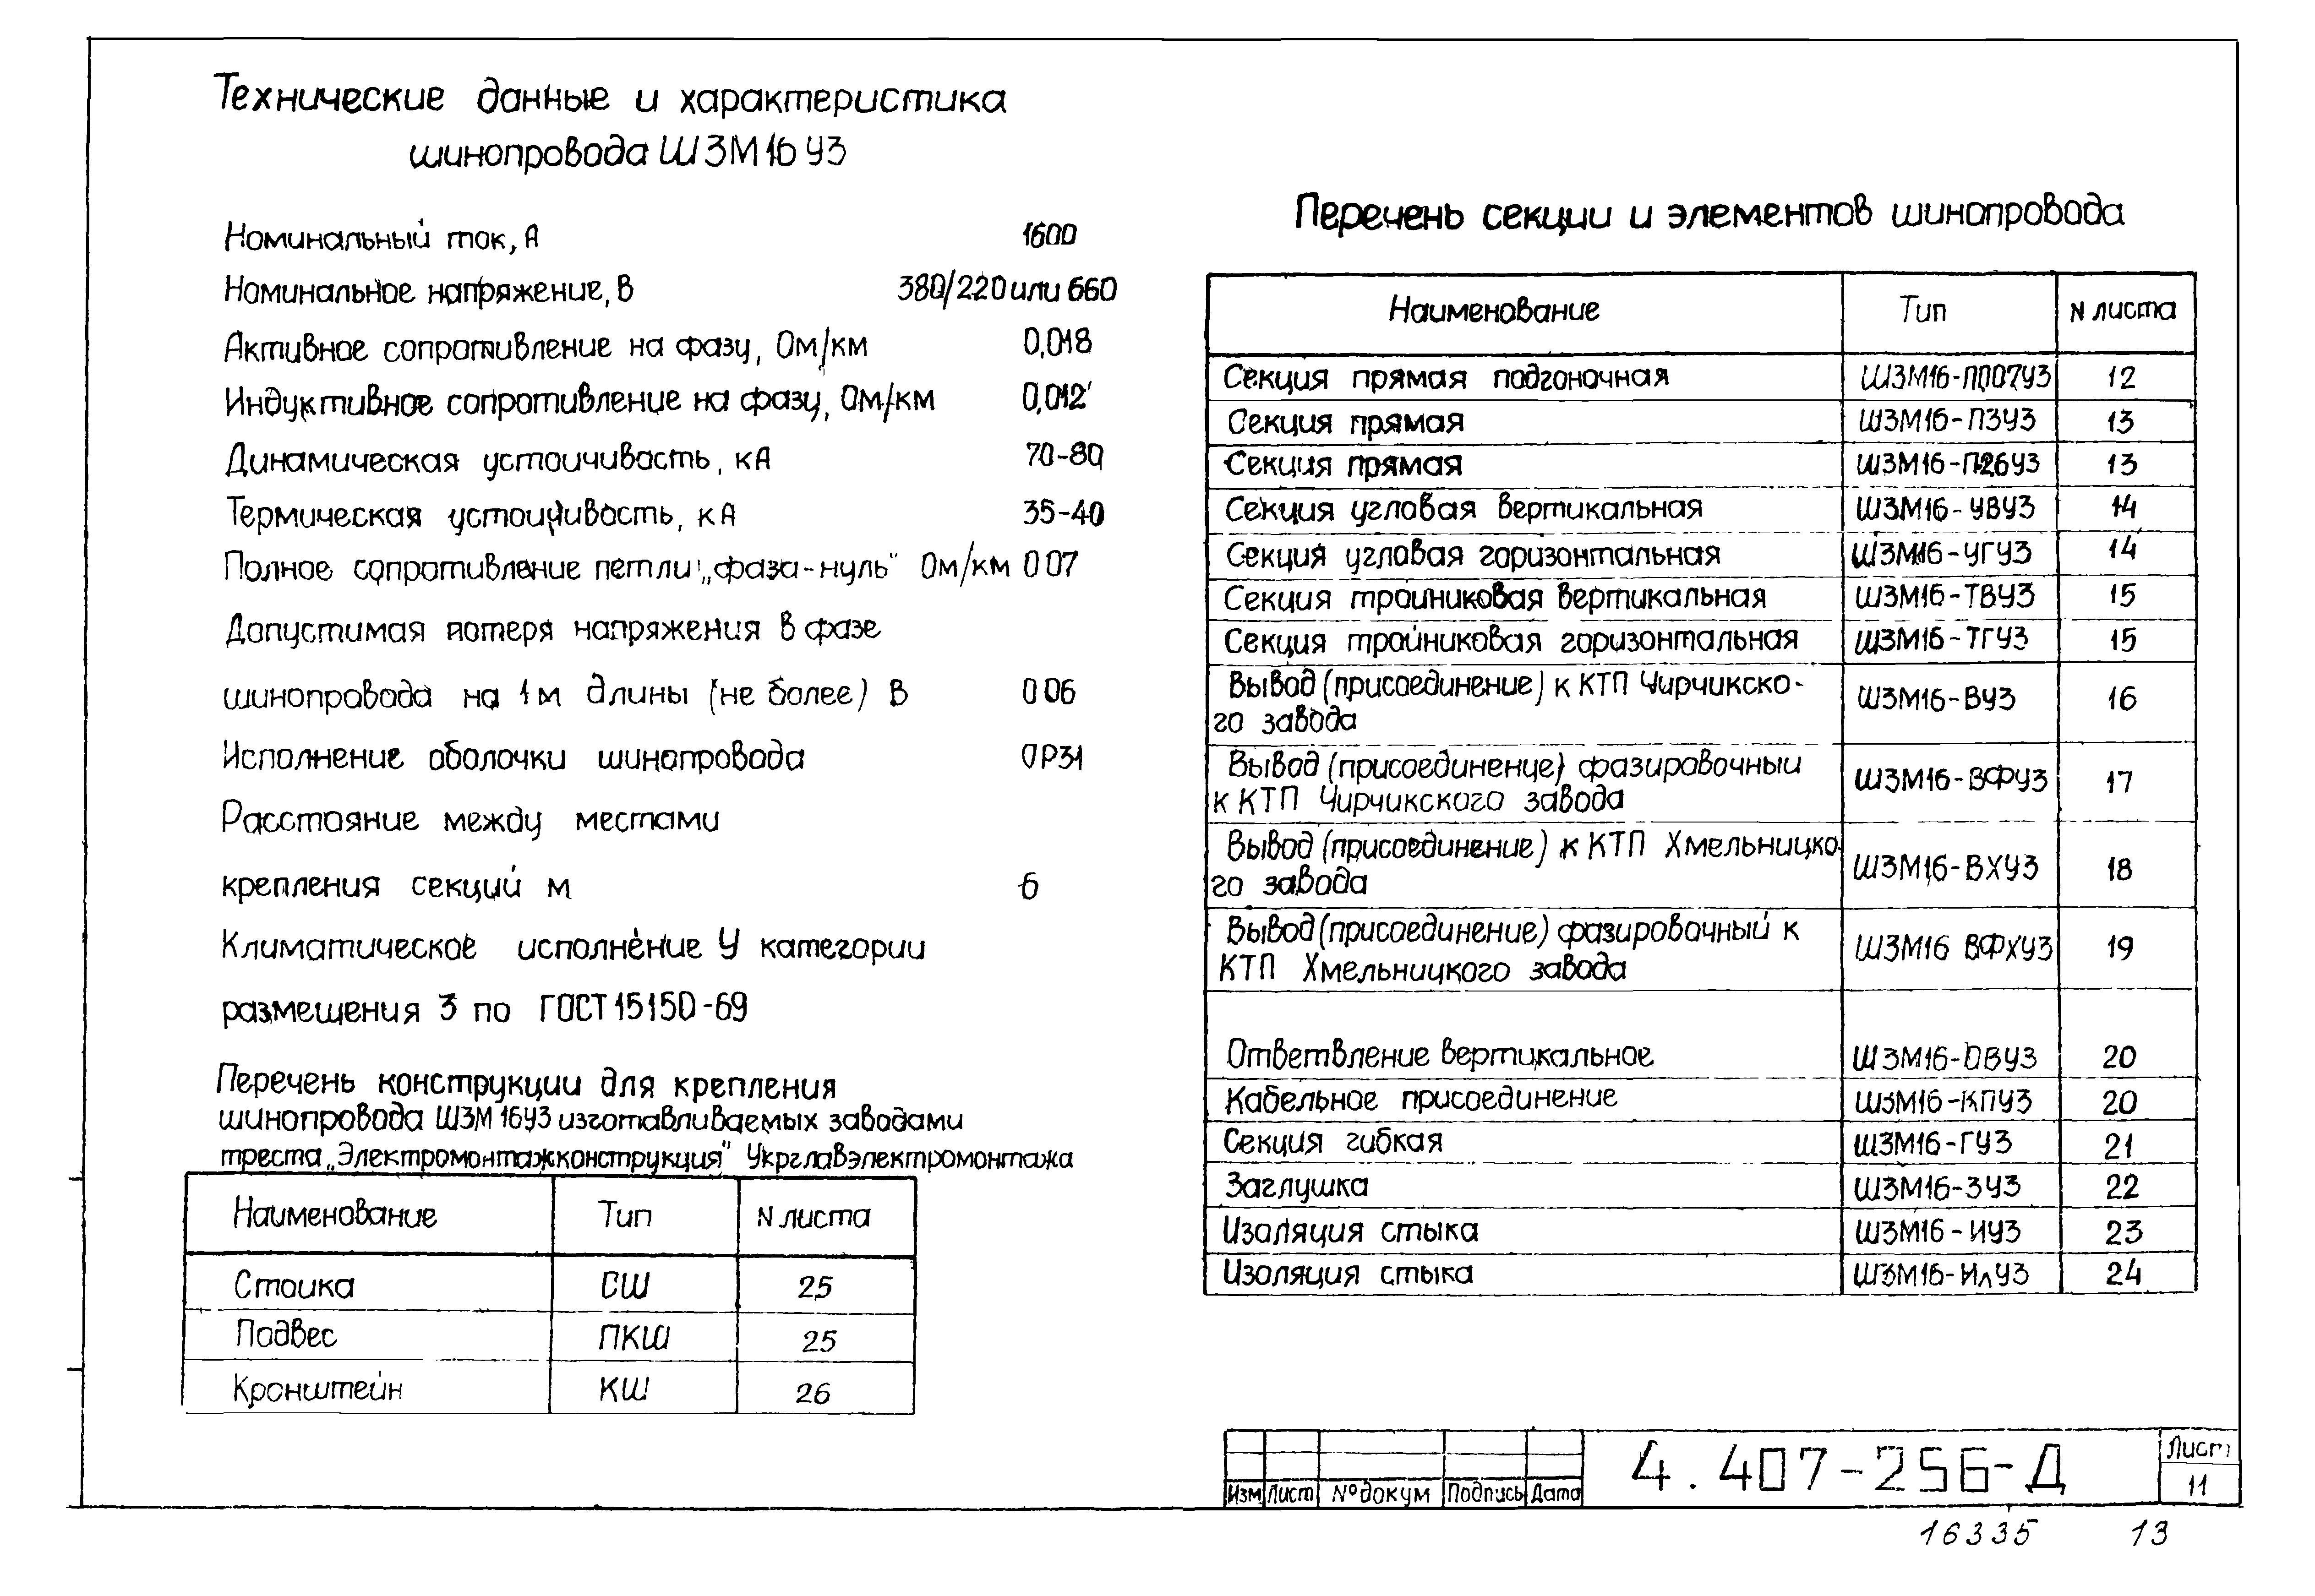 Технические данные и характеристика
шинопровода ШЗМ16У3
Номинальный ток, А 1600
Номинальное напряжение, В 380/220 или 660
Активное сопротивление на фазу, Ом/км 0,018
Индуктивное сопротивление на фазу, Ом/км 0,012
Динамическая устоичивость, кА 70-80
Термическая устоичивость, кА 35-40
Полное сопротивление петли „фаза-нуль" Ом/км 0 07
Допустимая потеря напряжения в фазе
шинопровода на 1м длины (не более) В 0 06
Исполнение оболочки шинопровода ОР31
Расстояние между местами
крепления секций м 6
Климатическое исполнение У категории
размещения 3 по ГОСТ 15150-69
Перечень конструкции для крепления
шинопровода ШЗМ 16У3 изготавливаемых заводами
треста „Электромонтажконструкция" Укрглавэлектромонтажа
Наименование Тип N листа
Стоика СШ 25
Подвес ПКШ 25
Кронштейн КШ 26
Перечень секции и элементов шинопровода
Наименование Тип N листа
Секция прямая подгоночная ШЗМ16-ПП07У3 12
Секция прямая ШЗМ16-П3У3 13
Секция прямая ШЗМ16-П26У3 13
Секция угловая вертикальная ШЗМ16-УВУ3 14
Секция угловая горизонтальная ШЗМ16-УГУ3 14
Секция троиниковая вертикальная ШЗМ16-ТВУ3 15
Секция тройниковая горизонтальная ШЗМ16-ТГУ3 15
Вывод (присоединение) к КТП Чирчикско-
го завода ШЗМ16-ВУ3 16
Вывод (присоединение) фазировочныи
к КТП Чирчикского завода ШЗМ16-ВФУ3 17
Вывод (присоединение) к КТП Хмельницко-
го завода ШЗМ16-ВХУ3 18
Вывод (присоединение) фазировочный к
КТП Хмельницкого завода ШЗМ16 ВФХУ3 19
Ответвление вертикальное ШЗМ16-ОВУ3 20
Кабельное присоединение ШЗМ16-КПУ3 20
Секция гибкая ШЗМ16-ГУ3 21
Заглушка ШЗМ16-ЗУ3 22
Изоляция стыка ШЗМ16-ИУ3 23
Изоляция стыка ШЗМ16-ИлУ3 24
Изм Лист N° докум Подпись Дата
4.407-256-Д
Лист
11
16335 13